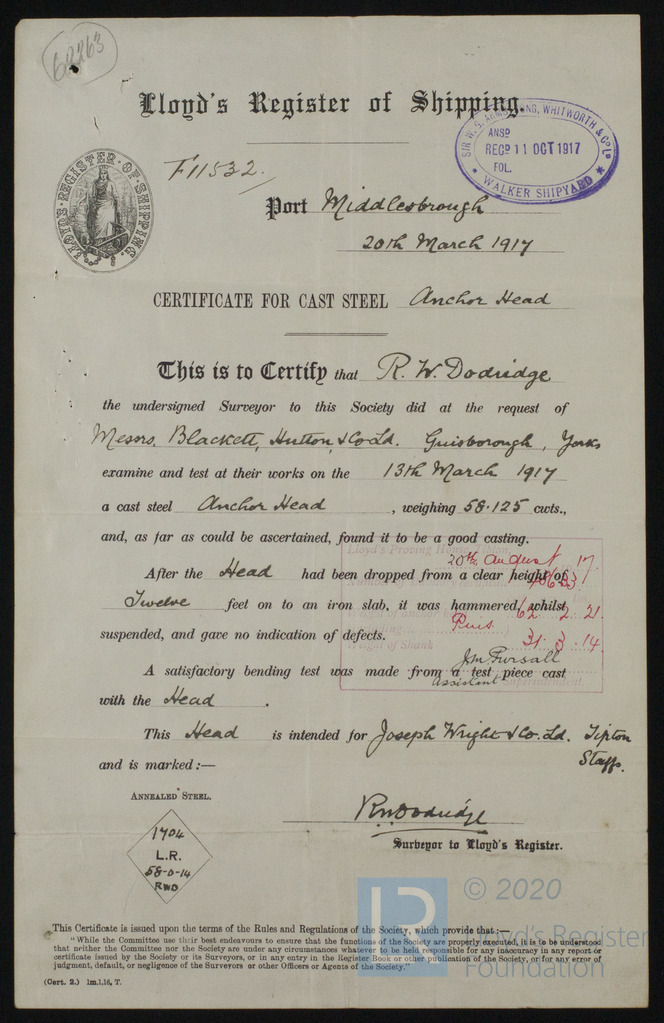 62263
Lloyd's Register of Shipping.
SIR W. G. ARMSTRONG, WHITWORTH & Co Ld
ANSD
RECD 11 OCT 1917
FOL.
★ WALKER SHIPYARD ★
LLOYDS REGISTER OF SHIPPING.
F11532.
Port Middlesbrough
20th March 1917
CERTIFICATE FOR CAST STEEL Anchor Head
This is to Certify that R. W. Dodridge
the undersigned Surveyor to this Society did at the request of
Messrs. Blackett, Hutton, & Co Ld. Guisborough, Yorks
examine and test at their works on the 13th March 1917
a cast steel Anchor Head, weighing 58.125 cwts.,
and, as far as could be ascertained, found it to be a good casting.
Lloyd's Proving House, Tipton
20th August 17.
After the Head had been dropped from a clear height of
Twelve feet on to an iron slab, it was hammered, whilst
62 . 2 . 21
suspended, and gave no indication of defects.
Weight of Shank 31 . 3 . 14
A satisfactory bending test was made from a test piece cast
Assistant Superintendent
with the Head.
This Head is intended for Joseph Wright & Co. Ld. Tipton
Staffs.
and is marked:—
ANNEALED STEEL.
RWDodridge
Surveyor to Lloyd's Register.
1704
L.R.
58-0-14
RWD
LR
© 2020
Lloyd's Register
Foundation
This Certificate is issued upon the terms of the Rules and Regulations of the Society, which provide that:—
"While the Committee use their best endeavours to ensure that the functions of the Society are properly executed, it is to be understood
that neither the Committee nor the Society are under any circumstances whatever to be held responsible for any inaccuracy in any report or
certificate issued by the Society or its Surveyors, or in any entry in the Register Book or other publication of the Society, or for any error of
judgment, default, or negligence of the Surveyors or other Officers or Agents of the Society."
(Cert. 2.) 1m.1,16, T.